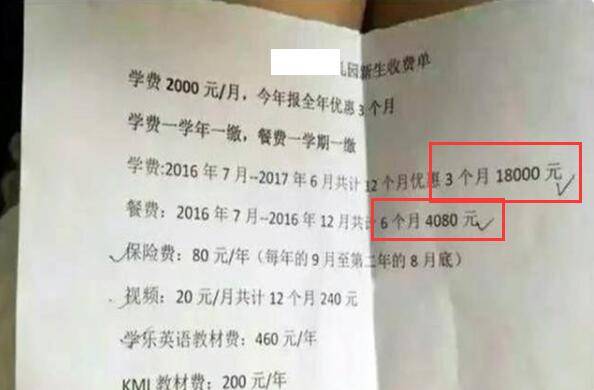 儿园新生收费单
学费 2000 元/月，今年报全年优惠 3 个月
学费一学年一缴，餐费一学期一缴
学费:2016 年 7 月--2017 年 6 月共计 12 个月优惠 3 个月 18000 元
餐费：2016 年 7 月--2016 年 12 月共计 6 个月 4080 元
保险费：80 元/年（每年的 9 月至第二年的 8 月底）
视频：20 元/月共计 12 个月 240 元
学乐英语教材费：460 元/年
KMI 教材费：200 元/年